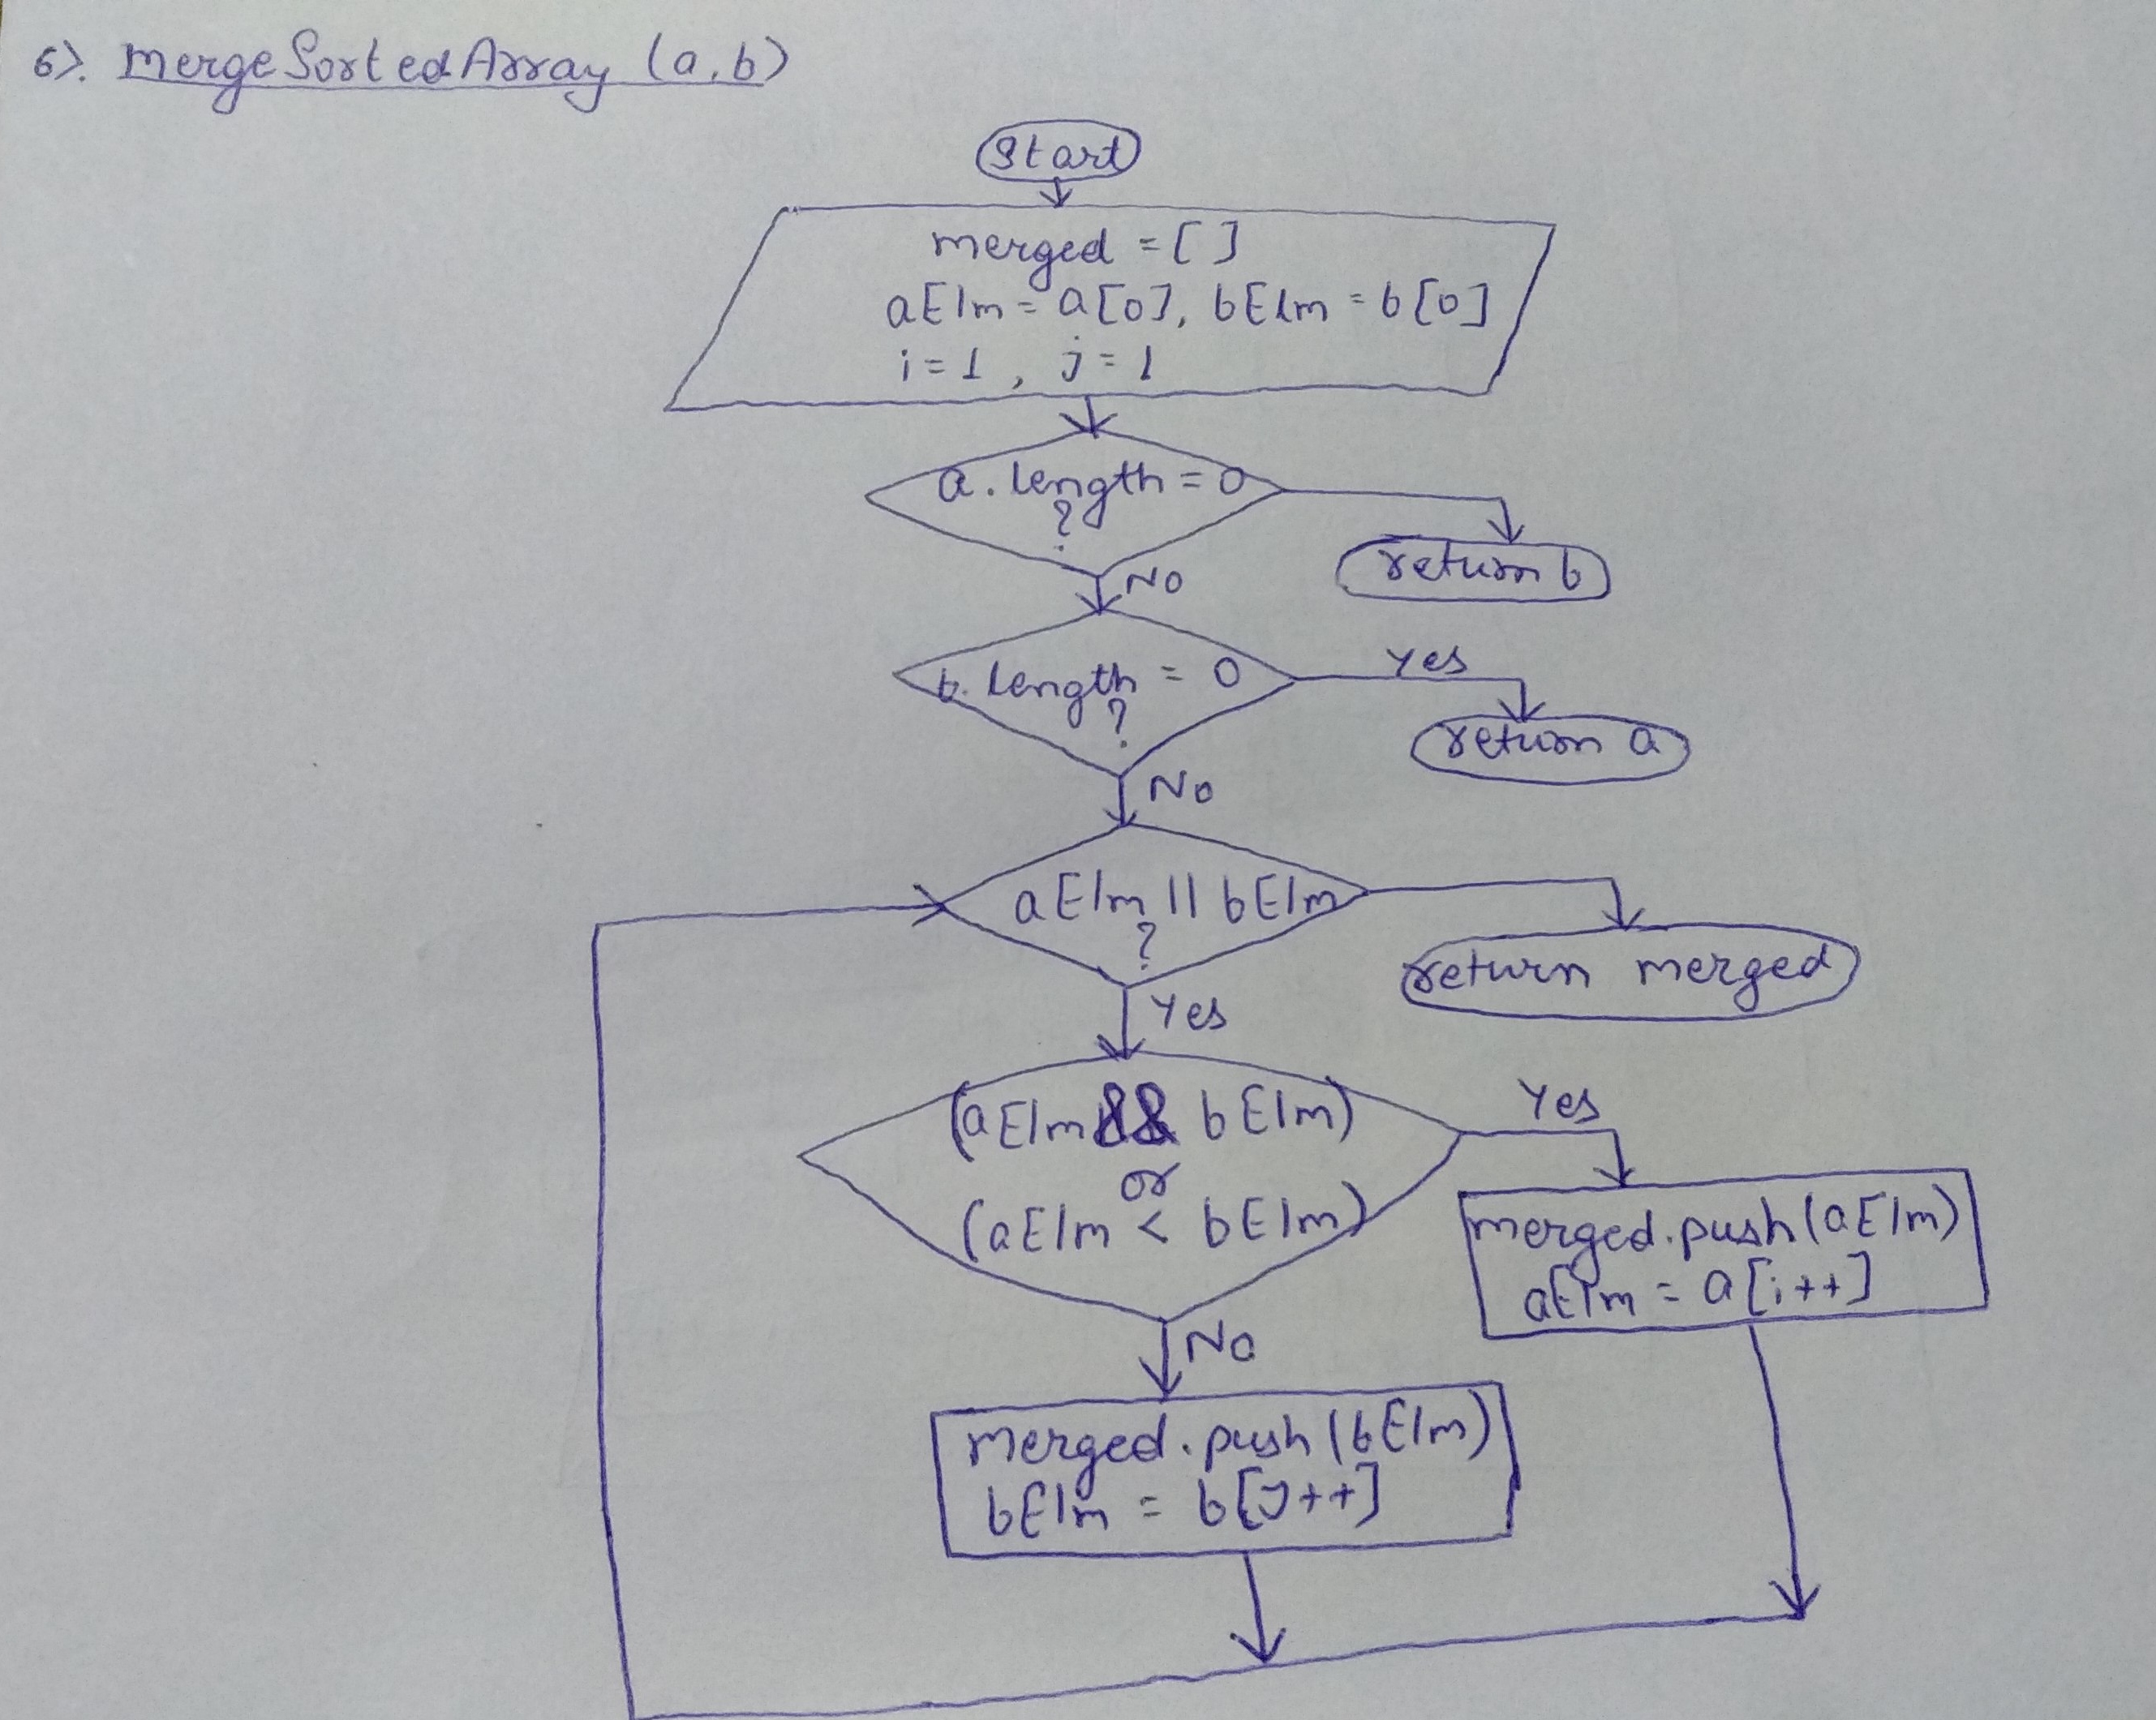 6). Merge Sorted Array (a, b)
Start
merged = [ ]
aElm = a[0], bElm = b[0]
i = 1, j = 1
a. length = 0
?
return b
No
b. length = 0
?
yes
return a
No
aElm || bElm
?
return merged
Yes
(aElm && bElm)
or
(aElm < bElm)
Yes
merged.push(aElm)
aElm = a[i++]
No
merged.push(bElm)
bElm = b[j++]